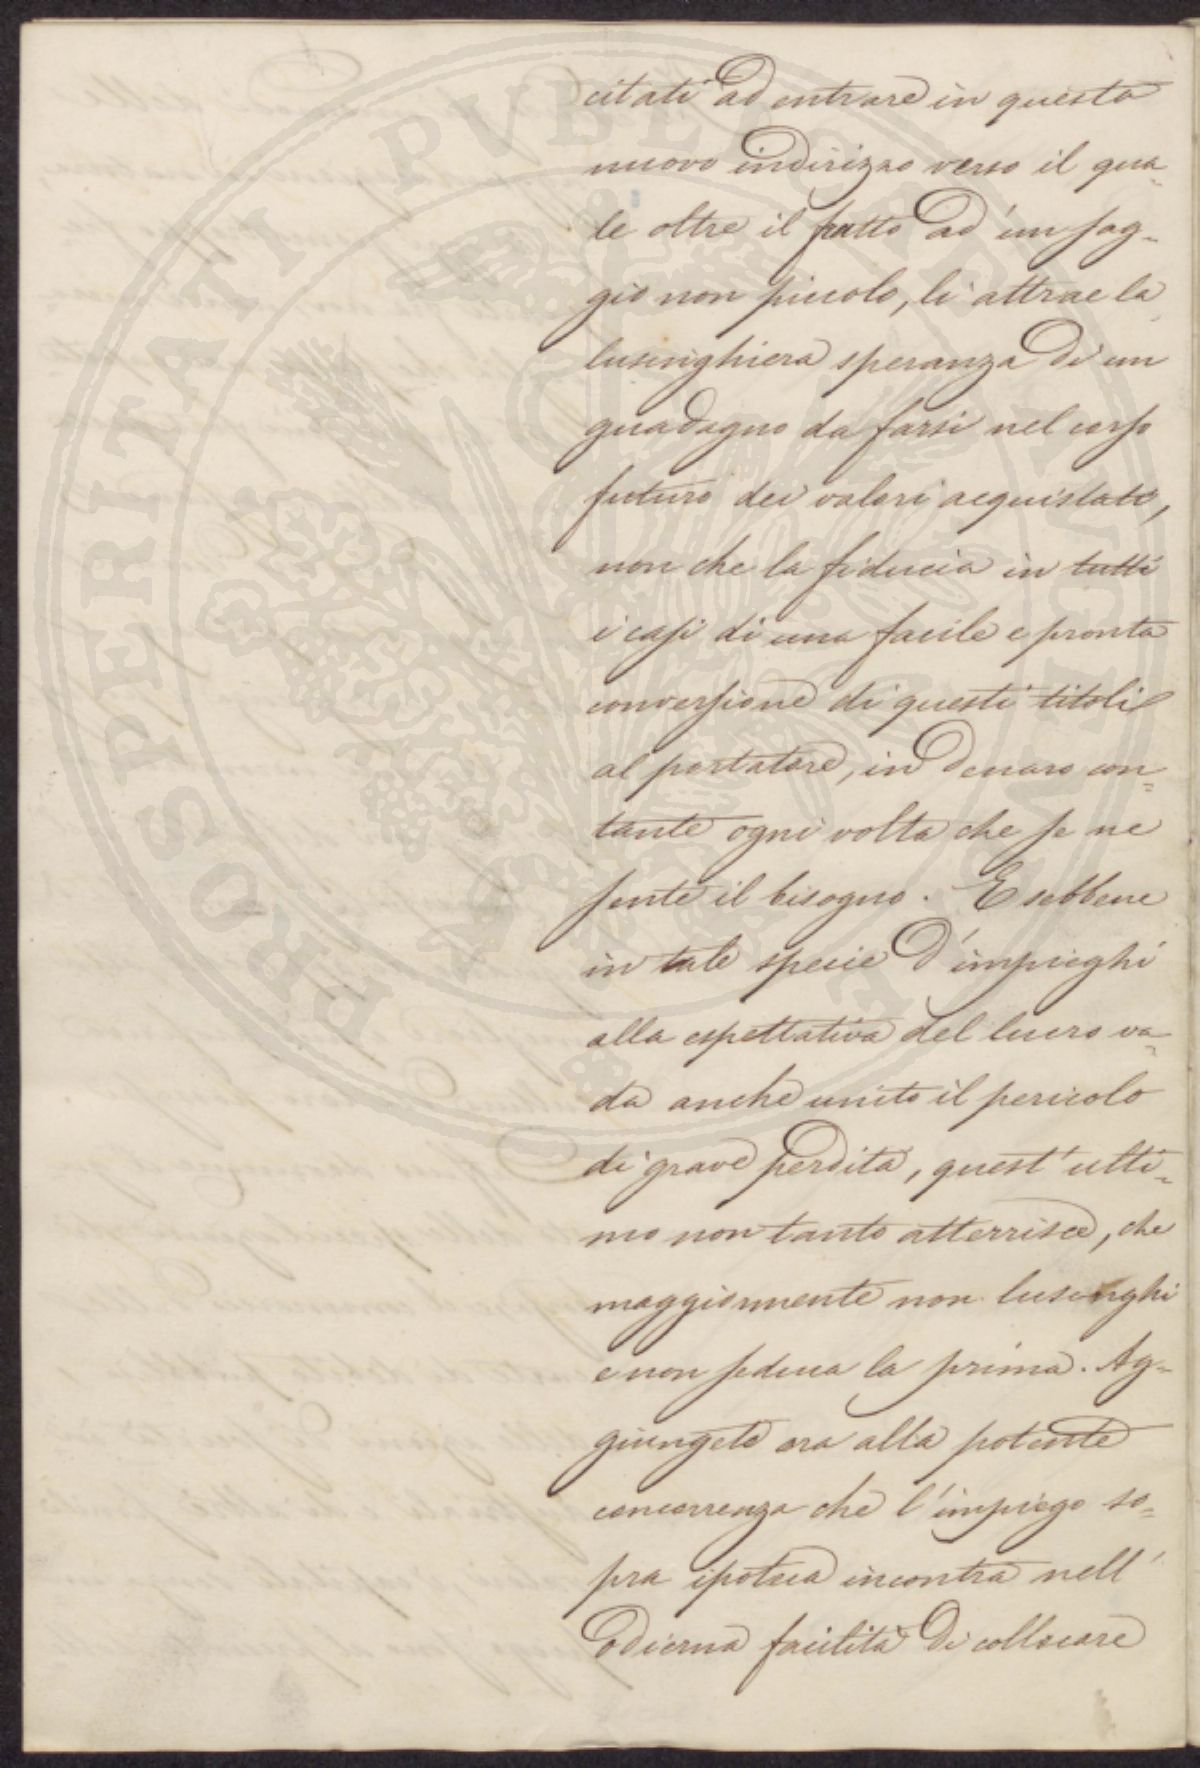 citati ad entrare in questo
nuovo indirizzo verso il qua-
le oltre il frutto ad un sag-
gio non piccolo, li attrae la
lusinghiera speranza di un
guadagno da farsi nel corso
futuro dei valori acquistati,
non che la fiducia in tutti
i casi di una facile e pronta
conversione di questi titoli
al portatore, in denaro con-
tante ogni volta che se ne
sente il bisogno. E sebbene
in tale specie d'impieghi
alla espettativa del lucro va-
da anche unito il pericolo
di grave perdita, quest'ulti-
mo non tanto atterrisce, che
maggiormente non lusinghi
e non seduca la prima. Ag-
giungete ora alla potente
concorrenza che l'impiego so-
pra ipoteca incontra nell'
odierna facilità di collocare
PROSPERITATI PVBLICAE